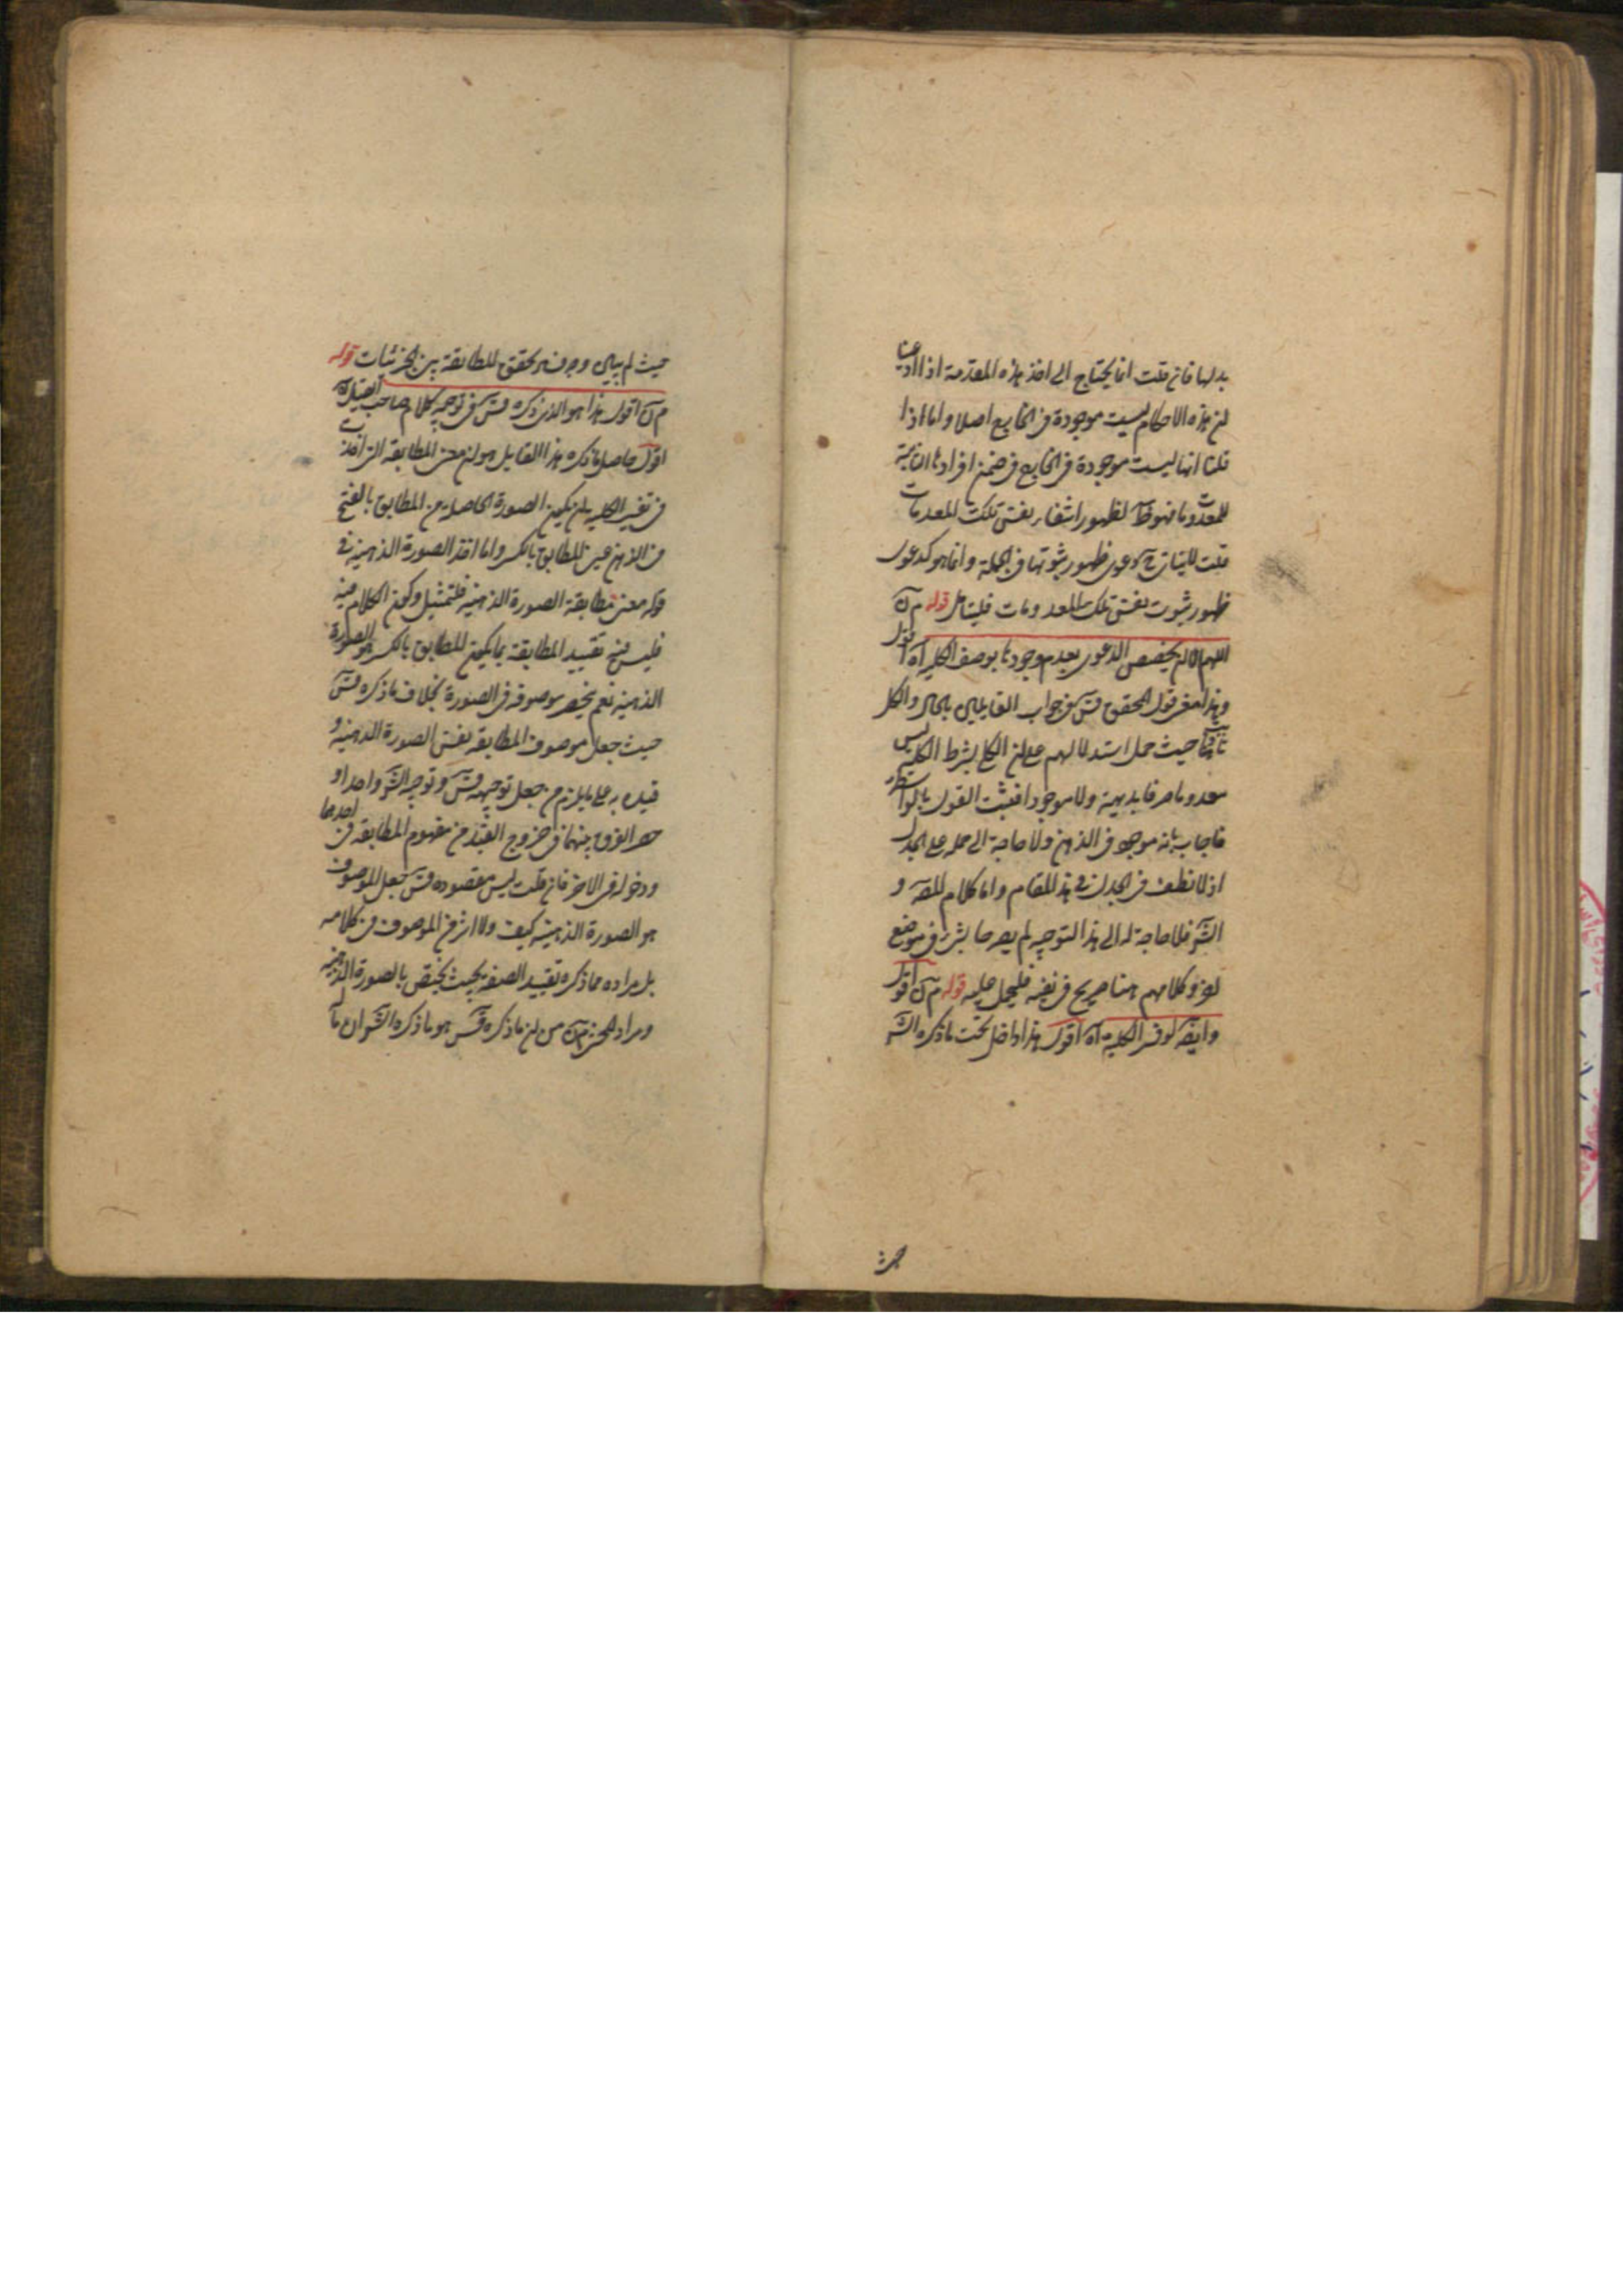 بدلها فان قلت انما يحتاج الى اخذ هذه المقدمة اذا ادعينا
ان هذه الاحكام ليست موجودة فى الخارج اصلا واما اذا
قلنا انها ليست موجودة فى الخارج فى ضمن افرادها الثابتة
للمعدومات لظهور انتفاء نفس تلك المعدومات
قلت دعوى ظهور ثبوتها فى الجملة وانما هو كدعوى
ظهور ثبوت نفس تلك المعدومات فليتامل قوله م ن
اللهم الا ان يخصص الدعوى بعدم وجودها بوصف الكلية آه اقول
وهذا معنى قول المحقق قس فى جواب القايلين بالحال والكل
حيث حمل استدلالهم على ان الكلى بشرط الكلية ليس
معدوما صرفا بديهية ولا موجودا فثبت القول بالواسطة
فاجاب بانه موجود فى الذهن ولا حاجة الى حمله على الجدل
اذ لا نظف فى الجدل فى هذا المقام واما كلام المصـ و
الشـ فلا حاجة له الى هذا التوجيه لم يصرحا بشئ فى موضع
لغو وكلامهم هنا صريح فى نفيه فليحمل عليه قوله م ن اقول
وايضـ لو فسر الكلية آه اقول هذا داخل تحت ما ذكره الشـ
حيث
حيث لم يبين وجه تحقق المطابقة بين الجزئيات قوله
م ن اقول هذا هو الذى ذكره قس فى توجيه كلام صاحب القيل آه
اقول حاصل ما ذكره هذا القايل هو ان معنى المطابقة التى اخذت
فى تفسير الكلية ان يكون الصورة الحاصلة من المطابق بالفتح
فى الذهن عين المطابق بالكسر واما اخذ الصورة الذهنية فى
قوله معنى مطابقة الصورة الذهنية فلتمثيل وكون الكلام فيه
فليس فيه تقييد المطابقة بما يكون المطابق بالكسر هو الصورة
الذهنية نعم يخص موصوفه فى الصورة بخلاف ما ذكره قس
حيث جعل موصوف المطابقة نفس الصورة الذهنية و
قيده به على ما يلزم من جعل توجيهه قس وتوجيه الشـ واحدا و
حصر الفرق بينهما فى خروج القيد من مفهوم المطابقة فى احدهما
ودخوله فى الاخر فان قلت ليس مقصوده قس جعل الموصوف
هو الصورة الذهنية كيف ولا اثر فى الموصوف فى كلامه
بل مراده مما ذكره تقييد الصفة بحيث يختص بالصورة الذهنية
ومراد المحشى من ان ما ذكره قس هو ما ذكره الشـ ان مآ